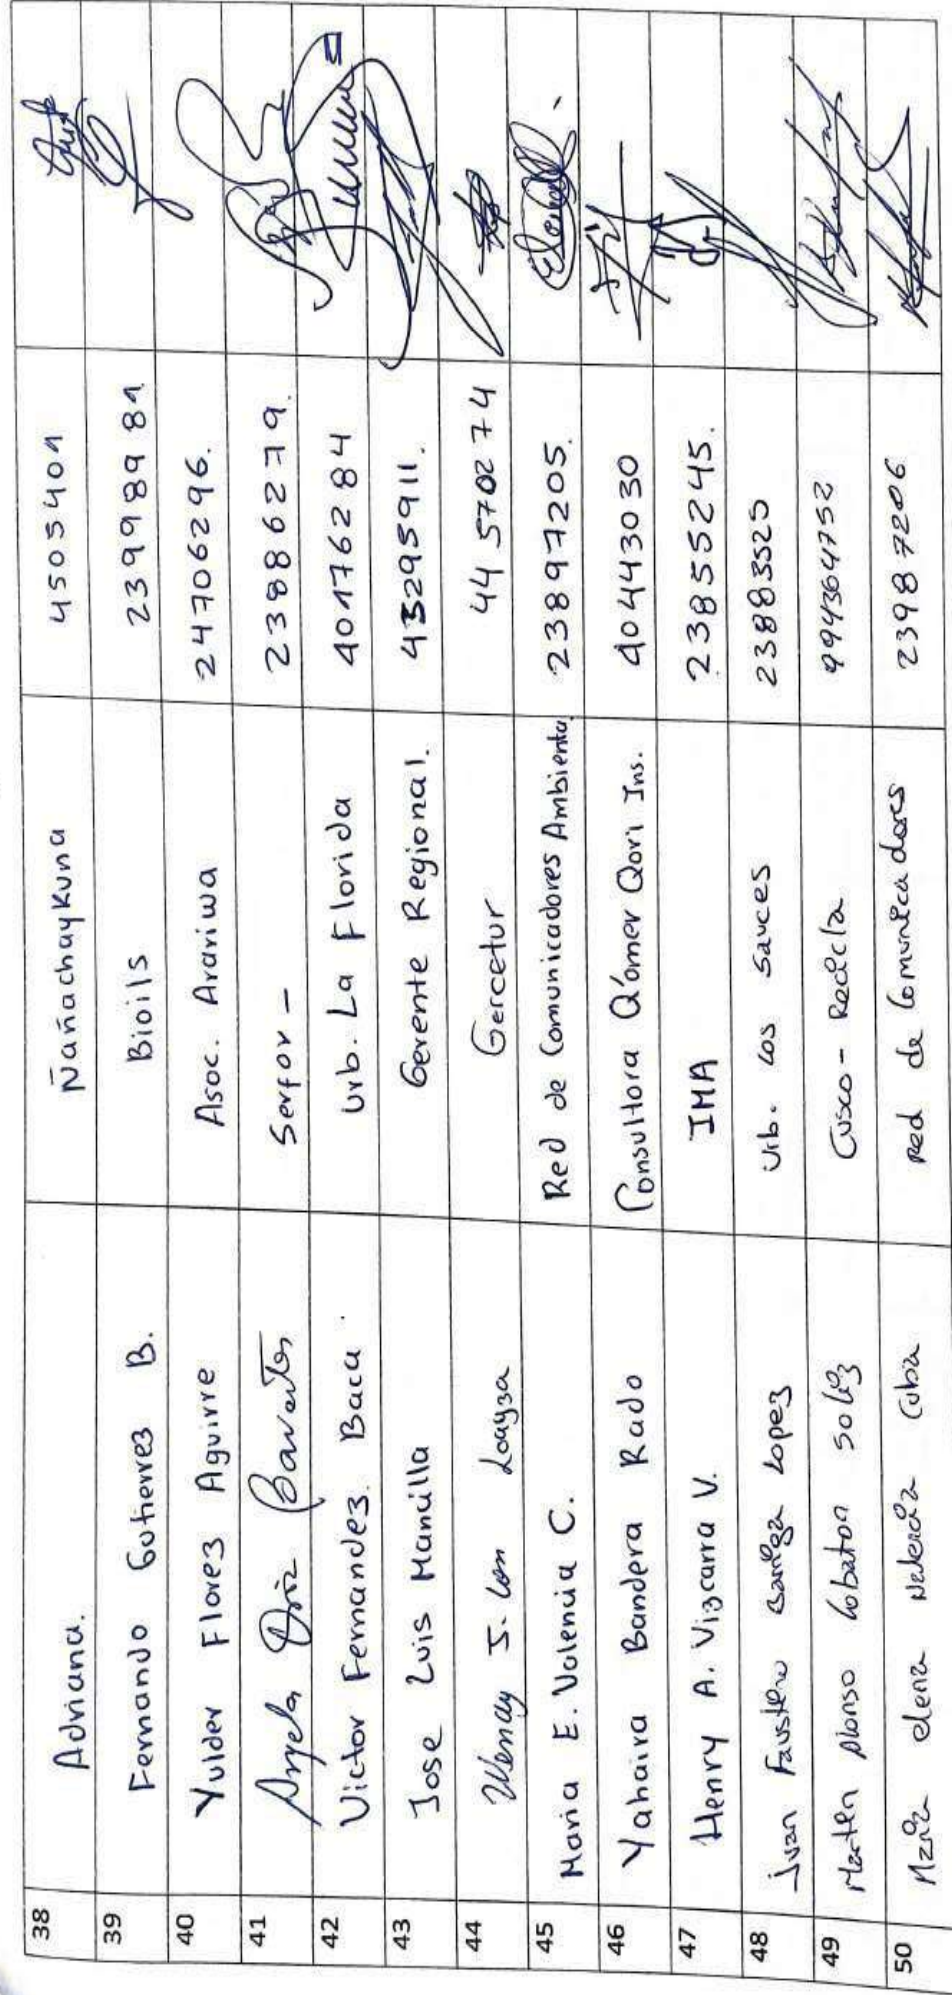 38 Adriana. Ñañachaykuna 4505401
39 Fernando Gutierrez B. Bioils 23998981
40 Yulder Florez Aguirre Asoc. Arariwa 24706296.
41 Angela Barantes Serfor - 23886279.
42 Victor Fernandez. Baca. Urb. La Florida 40176284
43 Jose Luis Mancilla Gerente Regional. 43295911.
44 Loayza Gercetur 44570274
45 Maria E. Valencia C. Red de Comunicadores Ambienta 23897205.
46 Yahaira Bandera Rado Consultora Q'omer Qori Ins. 40443030
47 Henry A. Vizcarra V. IMA 23855245.
48 Juan Lopez Urb. los Sauces 23883525
49 Alonso Lobaton Cusco - Recicla 994364752
50 elena Cubia red de Comunicadores 23987206